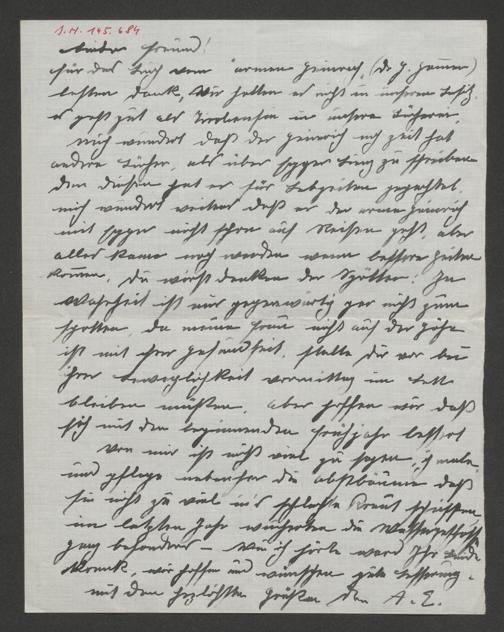 I.N. 145.684
Lieber Freund!
für das Buch vom "armen Heinrich" (Dr. H. Hammer)
besten Dank, Wir hatten es nicht in unserem Besitz.
es passt gut als in unsere Bücherei.
mich wundert daß der Heinrich noch Zeit hat
andere Bücher, als über Egger Lienz zu schreiben
denn diesen hat er für Lebzeiten gepachtet.
mich wundert weiter daß er der arme Heinrich
mit Egger nicht schon auf Reisen geht, aber
alles kann noch werden wenn bessere Zeiten
kommen. Du wirst denken der Spötter! In
Wahrheit ist mir gegenwärtig gar nicht zum
spotten, da meine Frau nicht auf der Höhe
ist mit ihrer Gesundheit. stelle Dir vor bei
ihrer Beweglichkeit vormittag im Bett
bleiben müssen. aber hoffen wir daß
sich mit dem beginnenden Frühjahr bessert
Von mir ist nicht viel zu sagen, ich male,
und pflege nebenher die Obstbäume daß
sie nicht zu viel in's schlechte Kraut schießen
im letzten Jahr wucherten die
ganz besonders – Wie ich hörte ward Ihr beide
krank, wir hoffen und wünschen gute Besserung.
mit den herzlichsten Grüßen Dein A. E.